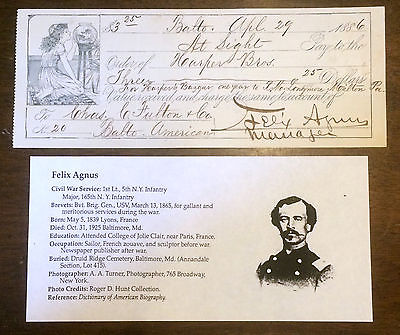 $3 25 Balto. Apl. 29 1886
At Sight Pay to the
Order of Harper Bros.
Three 25 Dollars
For Harper's Bazar one year to
Value received and charge the same to account of
To Chas. C. Fulton & Co. Felix Agnus
No. 20 Balto. American Manager
Felix Agnus
Civil War Service: 1st Lt., 5th N.Y. Infantry
Major, 165th N.Y. Infantry
Brevets: Bvt. Brig. Gen., USV, March 13, 1865, for gallant and
meritorious services during the war.
Born: May 5, 1839 Lyons, France
Died: Oct. 31, 1925 Baltimore, Md.
Education: Attended College of Jolie Clair, near Paris, France.
Occupation: Sailor, French zouave, and sculptor before war.
Newspaper publisher after war.
Buried: Druid Ridge Cemetery, Baltimore, Md. (Annandale
Section, Lot 415).
Photographer: A. A. Turner, Photographer, 765 Broadway,
New York.
Photo Credits: Roger D. Hunt Collection.
Reference: Dictionary of American Biography.